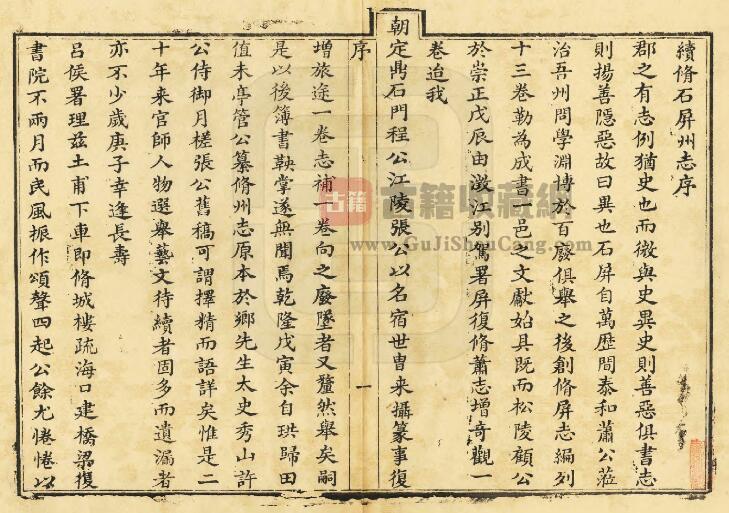 續脩石屏州志序
郡之有志例猶史也而微與史異史則善惡俱書志
則揚善隱惡故曰異也石屏自萬歷間泰和蕭公蒞
治吾州問學淵博於百廢俱舉之後創脩屏志編列
十三卷勒為成書一邑之文獻始具既而松陵顧公
於崇正戊辰由澂江別駕署屏復脩蕭志增奇觀一
卷迨我
朝定鼎石門程公江陵張公以名宿世冑来攝篆事復
序
一
增旅途一卷志補一卷向之廢墜者又釐然舉矣嗣
是以後簿書鞅掌遂無聞焉乾隆戊寅余自珙歸田
值未亭管公纂脩州志原本於鄉先生太史秀山許
公侍御月槎張公舊稿可謂擇精而語詳矣惟是二
十年来官師人物選舉藝文待續者固多而遺漏者
亦不少歲庚子幸逢長壽
呂侯署理茲土甫下車即脩城樓疏海口建橋梁復
書院不兩月而民風振作頌聲四起公餘尤惓惓以
古籍 古籍收藏網
www.GuJiShuCang.com